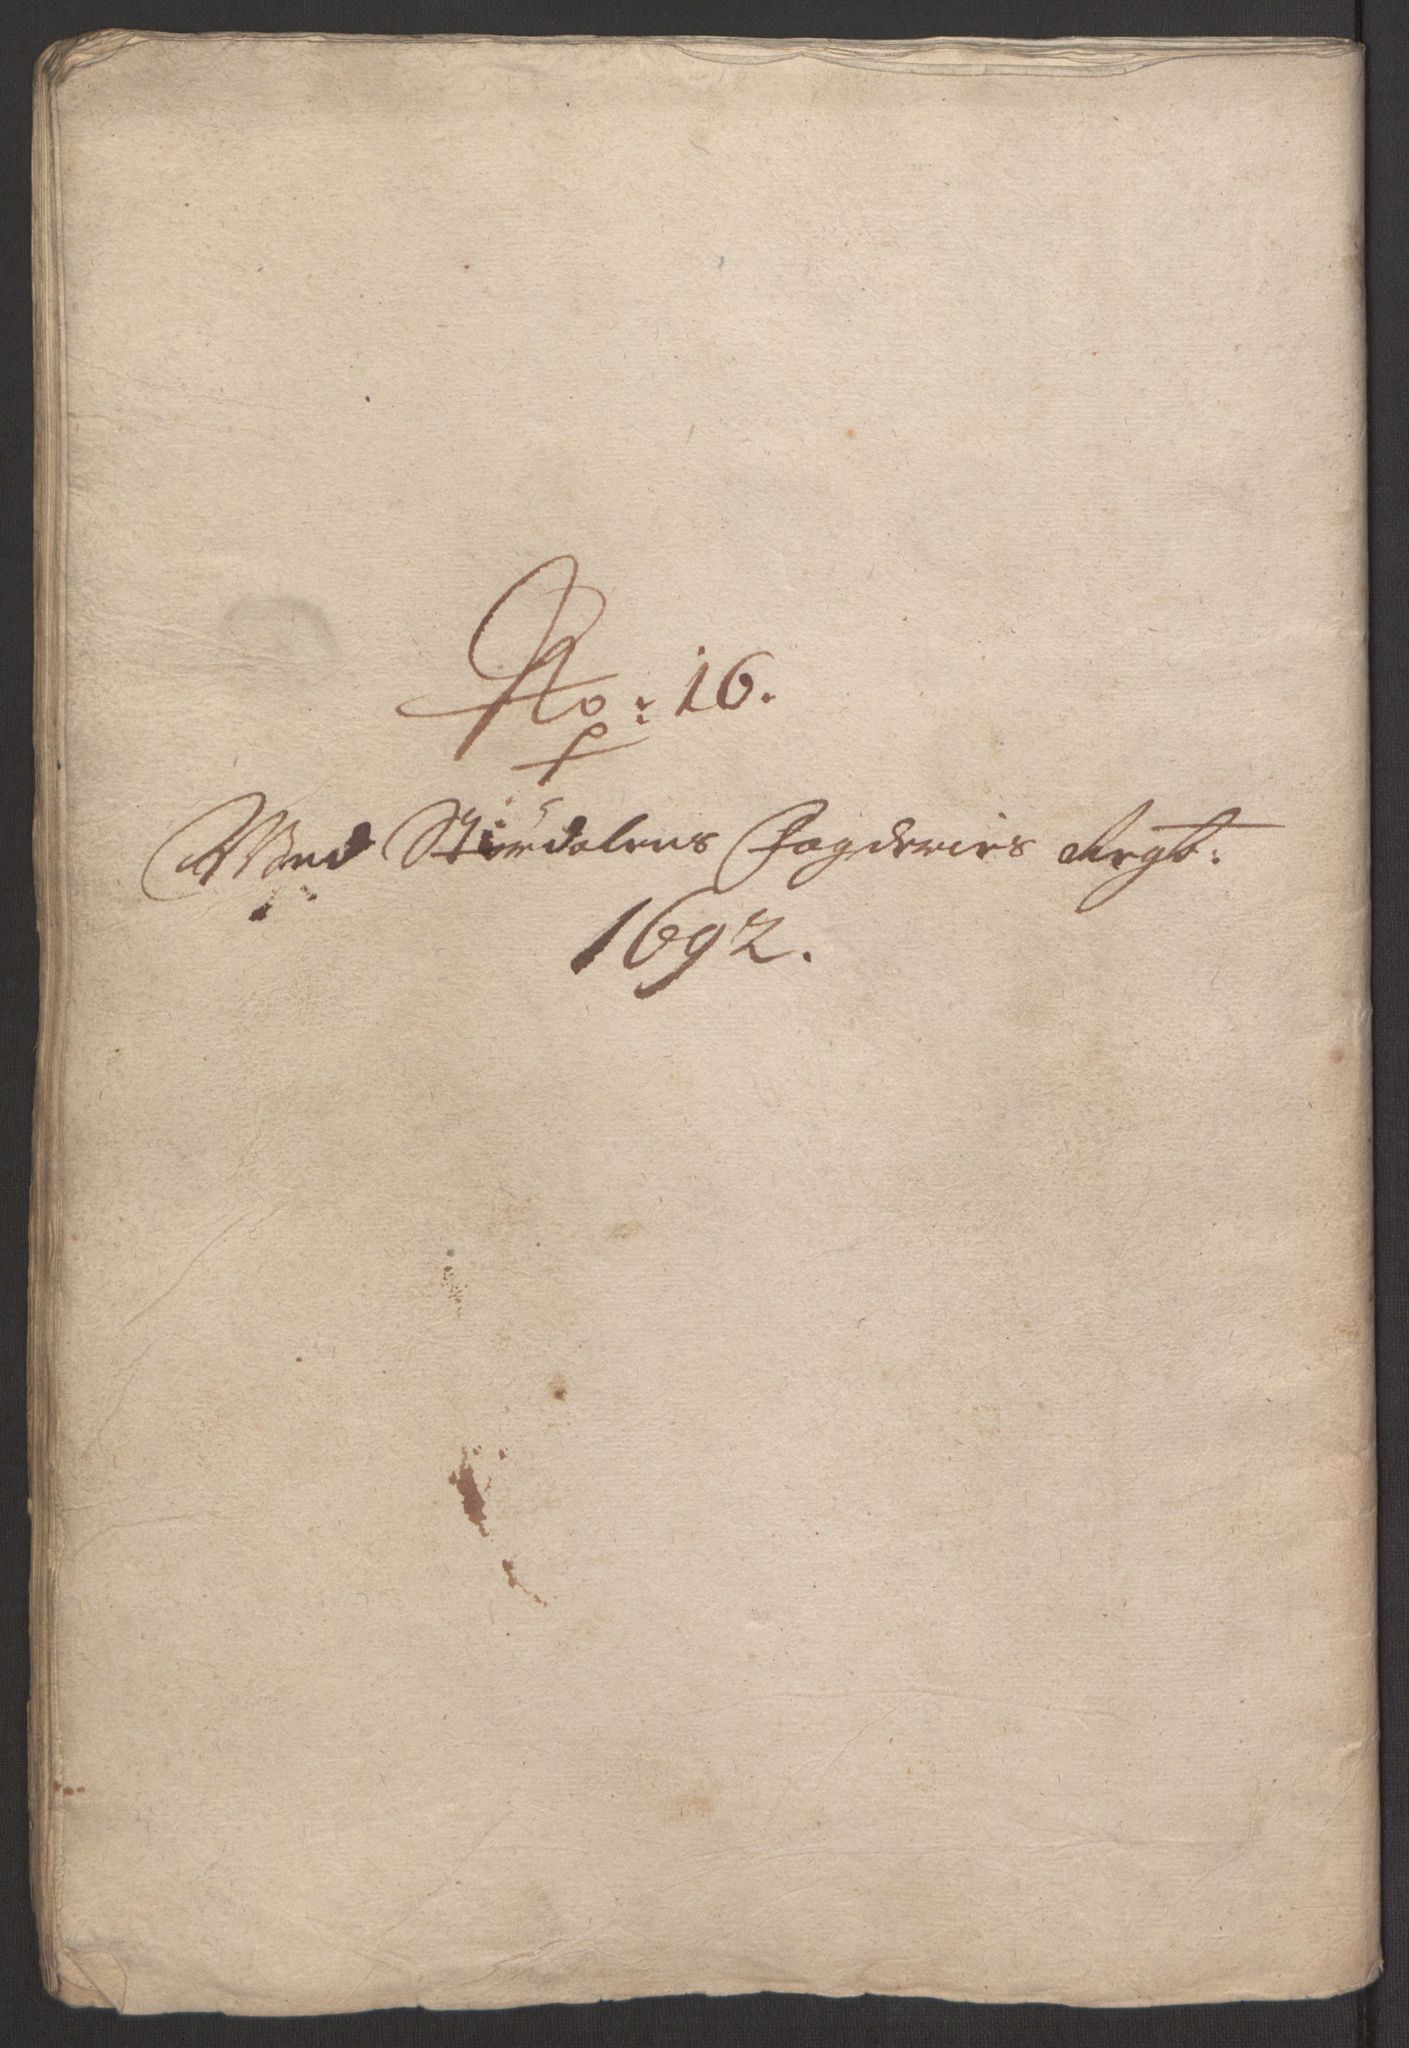 No: 16.
Med Stiørdalens Fogderies Regt:
1692.